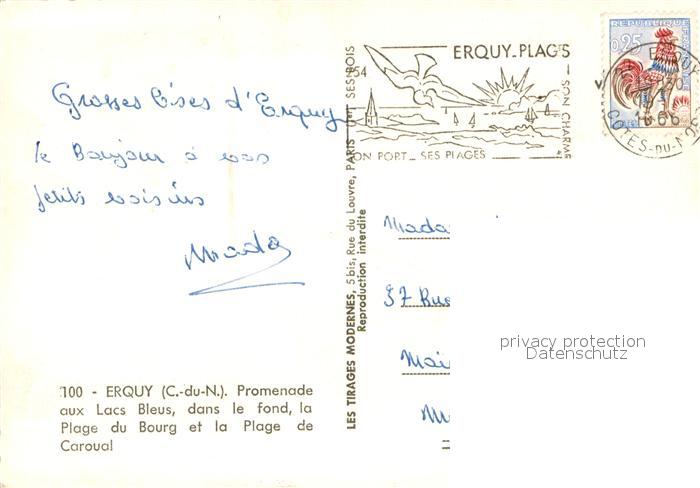 Grosses bises d'Erquy
le Bonjour à vos
petits voisins
Mado
100 - ERQUY (C.-du-N.). Promenade
aux Lacs Bleus, dans le fond, la
Plage du Bourg et la Plage de
Caroual
LES TIRAGES MODERNES, 5 bis, Rue du Louvre, PARIS
Reproduction interdite
ERQUY-PLAGES
SES BOIS
SON CHARME
SON PORT - SES PLAGES
REPUBLIQUE
0,25
ERQUY
1966
COTES-DU-NORD
Mada
57 Rue
Mai
M
privacy protection
Datenschutz